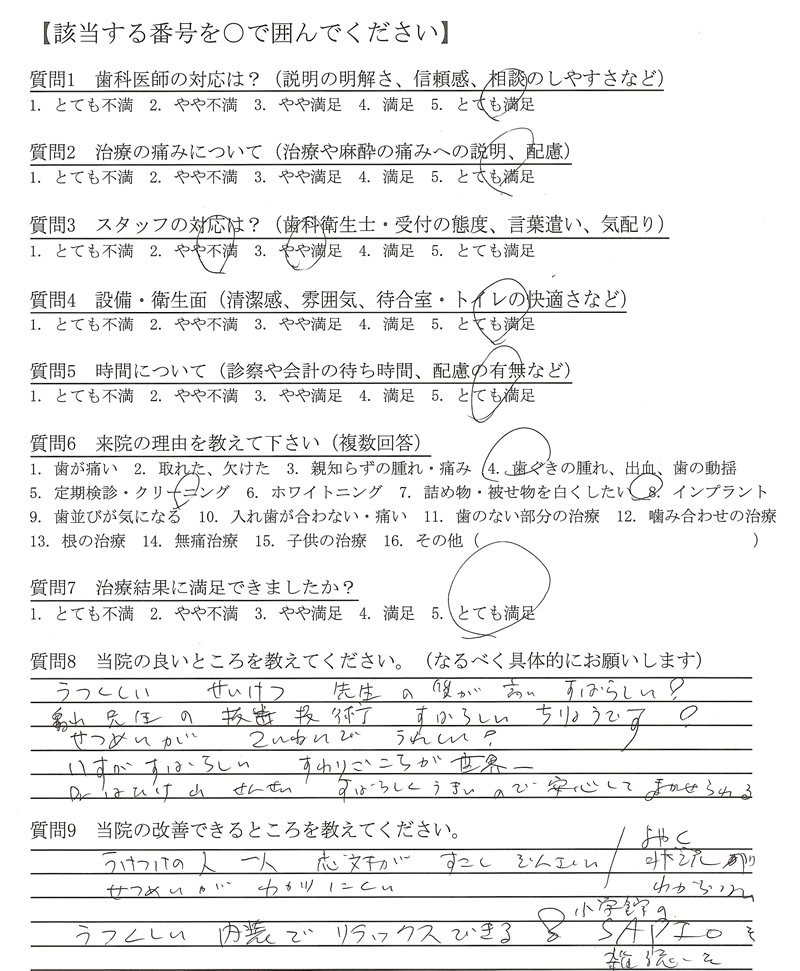 【該当する番号を○で囲んでください】
質問1　歯科医師の対応は？（説明の明解さ、信頼感、相談のしやすさなど）
1. とても不満　2. やや不満　3. やや満足　4. 満足　5. とても満足
質問2　治療の痛みについて（治療や麻酔の痛みへの説明、配慮）
1. とても不満　2. やや不満　3. やや満足　4. 満足　5. とても満足
質問3　スタッフの対応は？（歯科衛生士・受付の態度、言葉遣い、気配り）
1. とても不満　2. やや不満　3. やや満足　4. 満足　5. とても満足
質問4　設備・衛生面（清潔感、雰囲気、待合室・トイレの快適さなど）
1. とても不満　2. やや不満　3. やや満足　4. 満足　5. とても満足
質問5　時間について（診察や会計の待ち時間、配慮の有無など）
1. とても不満　2. やや不満　3. やや満足　4. 満足　5. とても満足
質問6　来院の理由を教えて下さい（複数回答）
1. 歯が痛い　2. 取れた、欠けた　3. 親知らずの腫れ・痛み　4. 歯ぐきの腫れ、出血、歯の動揺
5. 定期検診・クリーニング　6. ホワイトニング　7. 詰め物・被せ物を白くしたい　8. インプラント
9. 歯並びが気になる　10. 入れ歯が合わない・痛い　11. 歯のない部分の治療　12. 噛み合わせの治療
13. 根の治療　14. 無痛治療　15. 子供の治療　16. その他（　　　）
質問7　治療結果に満足できましたか？
1. とても不満　2. やや不満　3. やや満足　4. 満足　5. とても満足
質問8　当院の良いところを教えてください。（なるべく具体的にお願いします）
うつくしい　せいけつ　先生の質が高い　すばらしい！
先生の抜歯技術　すばらしい　ちりょうです！
せつめいが　ていねいで　うれしい！
いすがすばらしい　すわりごこちが世界一
せんせい　すばらしくうまいので安心してまかせられる
質問9　当院の改善できるところを教えてください。
うけつけの人　一人　応対が　すこし　ぞんざい
せつめいが　わかりにくい
よやく
わからない
うつくしい　内装で　リラックスできる
小学館の
SAPIOを